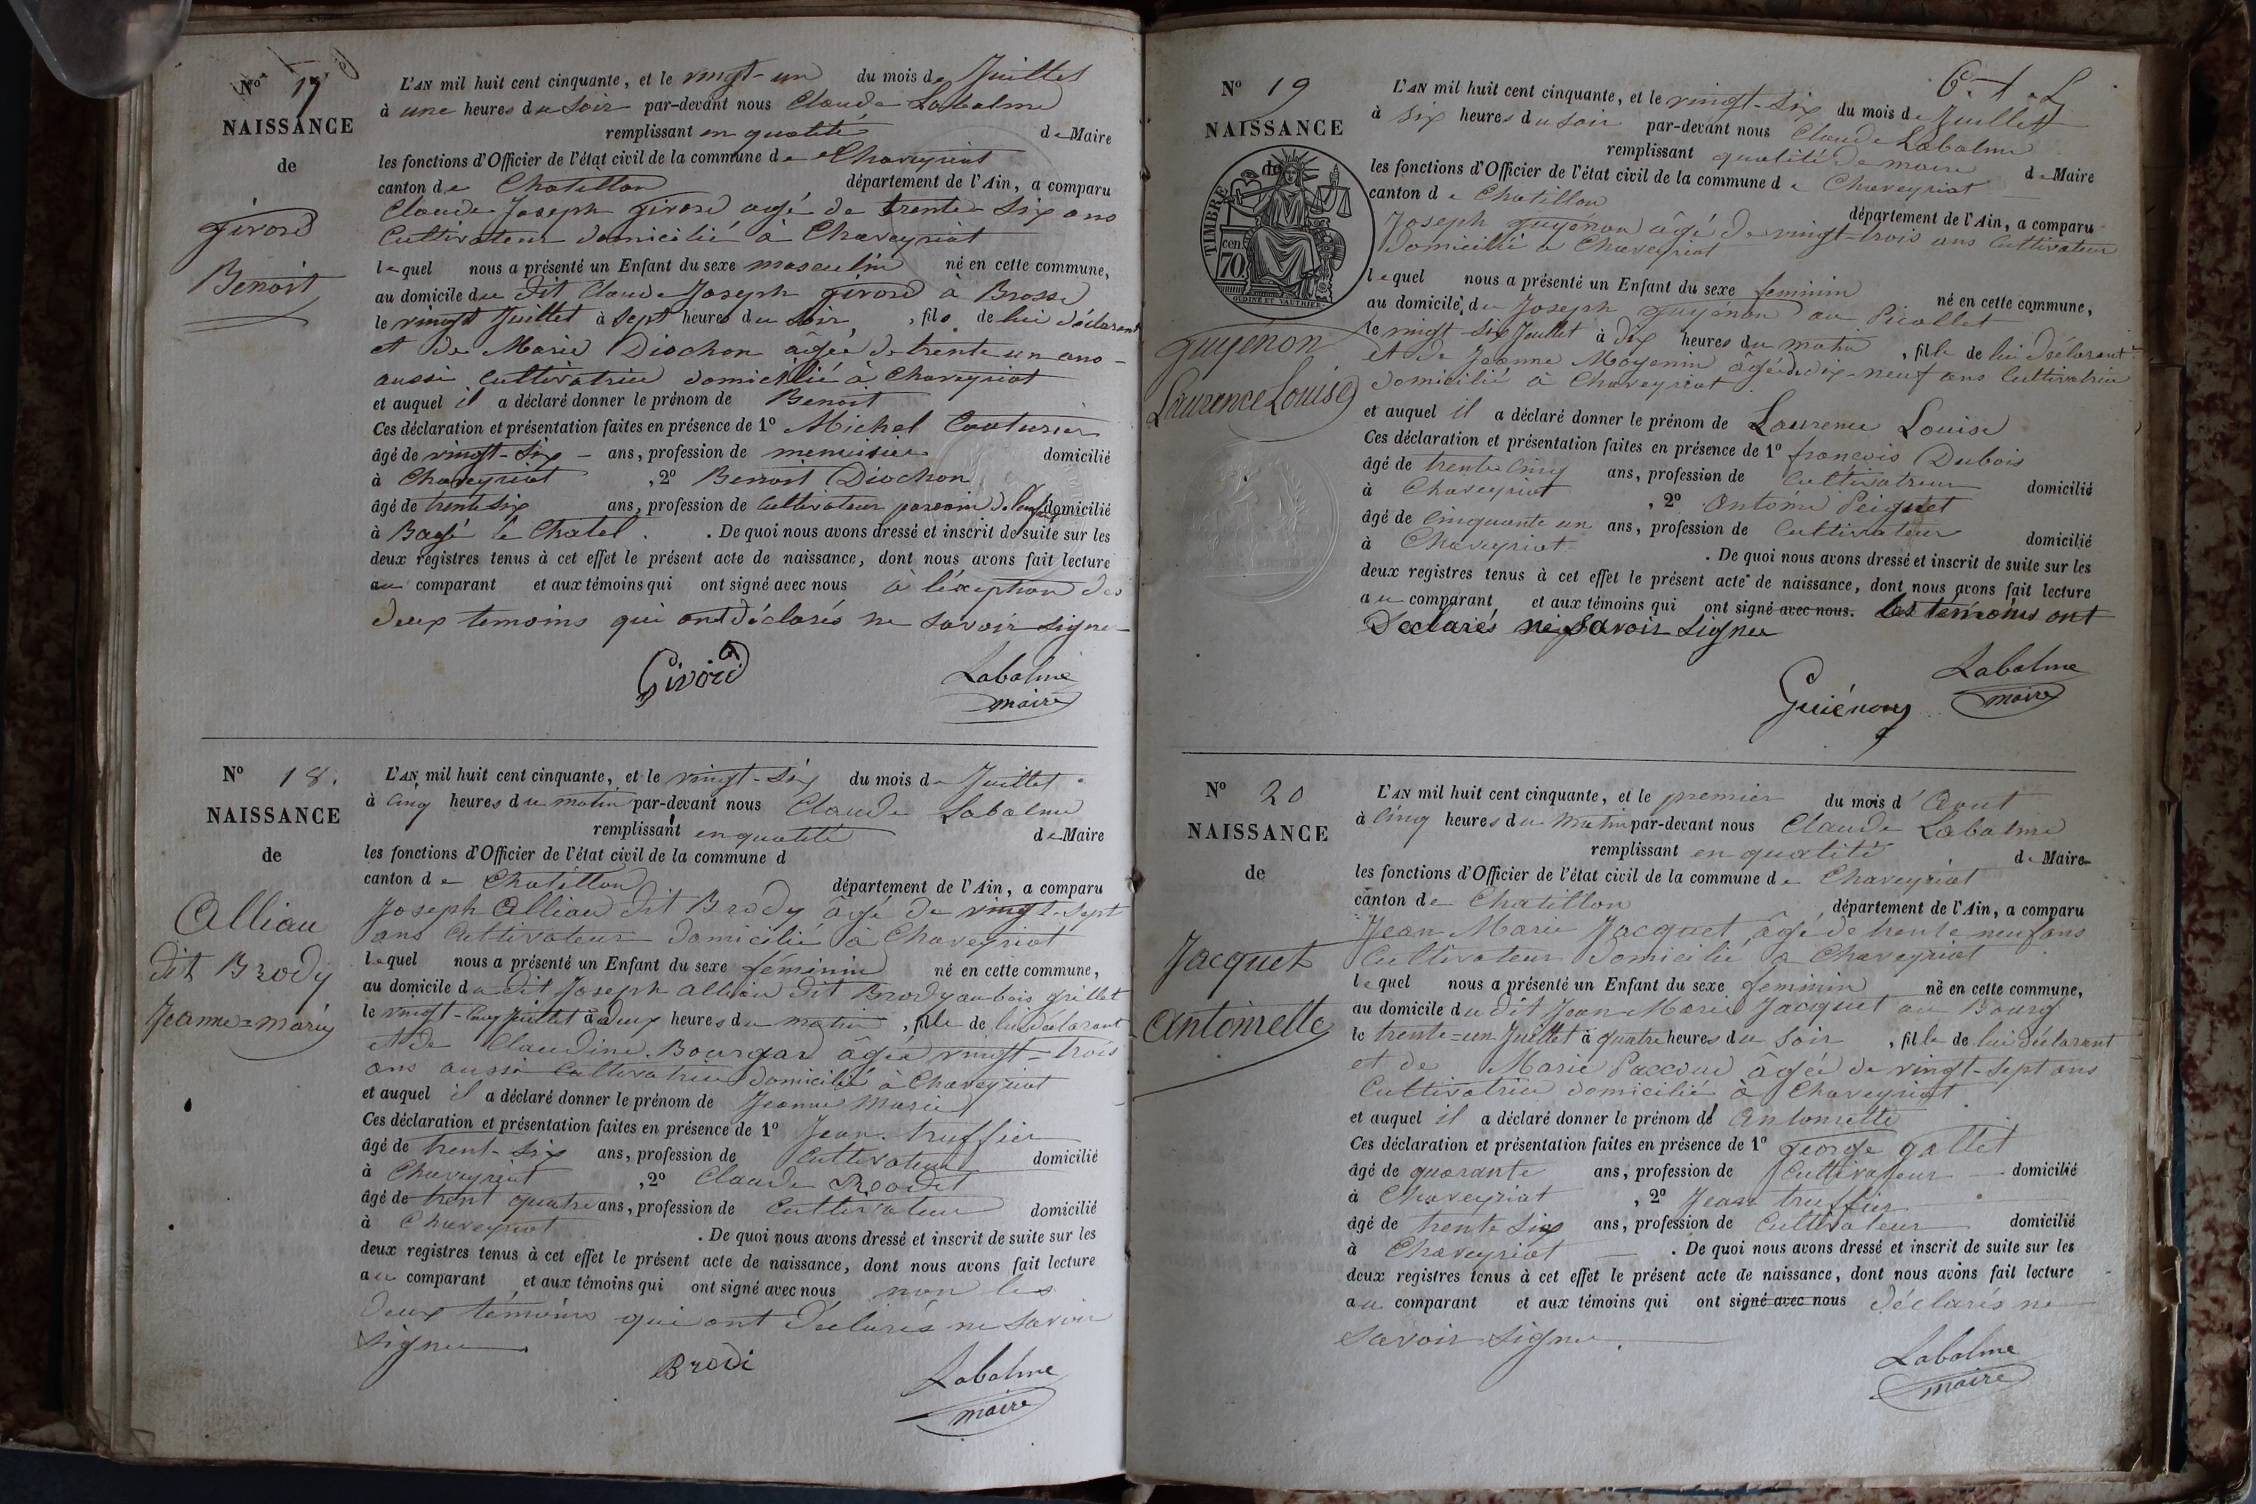 N° 17
NAISSANCE
de
Givord
Benoit
L'AN mil huit cent cinquante, et le vingt-un du mois de Juillet
à une heures du soir par-devant nous Claude Labalme
remplissant en qualité de Maire
les fonctions d'Officier de l'état civil de la commune de Chaveyriat
canton de Chatillon département de l'Ain, a comparu
Claude Joseph Givord agé de trente six ans
Cultivateur domicilié à Chaveyriat
lequel nous a présenté un Enfant du sexe masculin né en cette commune,
au domicile du dit Claude Joseph Givord à Brosse
le vingt Juillet à sept heures du soir, fils de lui déclarant
et de Marie Diochon agée de trente un ans
aussi cultivatrice domicilié à Chaveyriat
et auquel il a déclaré donner le prénom de Benoit
Ces déclaration et présentation faites en présence de 1° Michel Couturier
âgé de vingt-six ans, profession de menuisier domicilié
à Chaveyriat , 2° Benoit Diochon
âgé de trente six ans, profession de Cultivateur parrain de l'enfant domicilié
à Bagé le Chatel . De quoi nous avons dressé et inscrit de suite sur les
deux registres tenus à cet effet le présent acte de naissance, dont nous avons fait lecture
au comparant et aux témoins qui ont signé avec nous à l'éxception des
deux temoins qui ont déclarés ne savoir signer
Givord Labalme
maire
N° 18.
NAISSANCE
de
Alliau
dit Brody
Jeanne=marie
L'AN mil huit cent cinquante, et le vingt-six du mois de Juillet
à cinq heures du matin par-devant nous Claude Labalme
remplissant en qualité de Maire
les fonctions d'Officier de l'état civil de la commune d
canton de Chatillon département de l'Ain, a comparu
Joseph Alliau dit Brody âgé de vingt-sept
ans Cultivateur domicilié à Chaveyriat
lequel nous a présenté un Enfant du sexe féminin né en cette commune,
au domicile du dit Joseph Alliau dit Brody au bois grillet
le vingt-cinq Juillet à deux heures du matin , fille de lui déclarant
et de Claudine Bourgad âgée vingt-trois
ans aussi Cultivatrice domicilié à Chaveyriat
et auquel il a déclaré donner le prénom de Jeanne Marie
Ces déclaration et présentation faites en présence de 1° Jean truffier
âgé de trent-six ans, profession de Cultivateur domicilié
à Chaveyriat , 2° Claude
âgé de trent quatre ans, profession de Cultivateur domicilié
à Chaveyriat . De quoi nous avons dressé et inscrit de suite sur les
deux registres tenus à cet effet le présent acte de naissance, dont nous avons fait lecture
au comparant et aux témoins qui ont signé avec nous non les
deux témoins qui ont déclarés ne savoir
signer
Brodi Labalme
maire
N° 19
NAISSANCE
de
TIMBRE
70
Guyénon
Laurence Louise
L'AN mil huit cent cinquante, et le vingt-six du mois de Juillet
à six heures du soir par-devant nous Claude Labalme
remplissant qualité de maire de Maire
les fonctions d'Officier de l'état civil de la commune de Chaveyriat
canton de Chatillon département de l'Ain, a comparu
Joseph Guyénon âgé de vingt-trois ans Cultivateur
domicilié a Chaveyriat
lequel nous a présenté un Enfant du sexe feminin né en cette commune,
au domicile de Joseph Guyénon au Picollet
le vingt-six Juillet à dix heures du matin , fille de lui déclarant
et de Jeanne Moyenin âgée de dix-neuf ans Cultivatrice
domicilié à Chaveyriat
et auquel il a déclaré donner le prénom de Laurence Louise
Ces déclaration et présentation faites en présence de 1° françois Dubois
âgé de trente cinq ans, profession de Cultivatreur domicilié
à Chaveyriat , 2° Antoine Peiguet
âgé de cinquante un ans, profession de Cultivateur domicilié
à Chaveyriat . De quoi nous avons dressé et inscrit de suite sur les
deux registres tenus à cet effet le présent acte de naissance, dont nous avons fait lecture
au comparant et aux témoins qui ont signé avec nous. les témoins ont
Declarés ne savoir signer
Guiénon Labalme
maire
N° 20
NAISSANCE
de
Jacquet
Antoinette
L'AN mil huit cent cinquante, et le premier du mois d'Aout
à cinq heures du matin par-devant nous Claude Labalme
remplissant en qualité de Maire
les fonctions d'Officier de l'état civil de la commune de Chaveyriat
canton de Chatillon département de l'Ain, a comparu
Jean Marie Jacquet âgé de trente neuf ans
Cultivateur domicilié à Chaveyriat
lequel nous a présenté un Enfant du sexe feminin né en cette commune,
au domicile du dit Jean Marie Jacquet au Bourg
le trente=un Juillet à quatre heures du soir , fille de lui déclarant
et de Marie Paccoud âgée de vingt-sept ans
Cultivatrice domicilié à Chaveyriat
et auquel il a déclaré donner le prénom de Antoinette
Ces déclaration et présentation faites en présence de 1° george gallet
âgé de quarante ans, profession de Cultivateur domicilié
à Chaveyriat , 2° Jean truffier
âgé de trente six ans, profession de Cultivateur domicilié
à Chaveyriat . De quoi nous avons dressé et inscrit de suite sur les
deux registres tenus à cet effet le présent acte de naissance, dont nous avons fait lecture
au comparant et aux témoins qui ont signé avec nous déclarés ne
savoir signer.
Labalme
maire